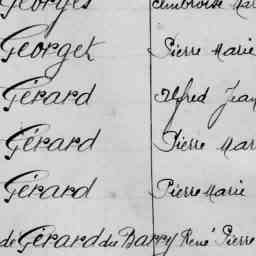 Georges Ambroise Mar
Georget Pierre Marie
Gérard Alfred Jean
Gérard Pierre Mar
Gérard Pierre Marie
de Gérard du Barry René Pierre